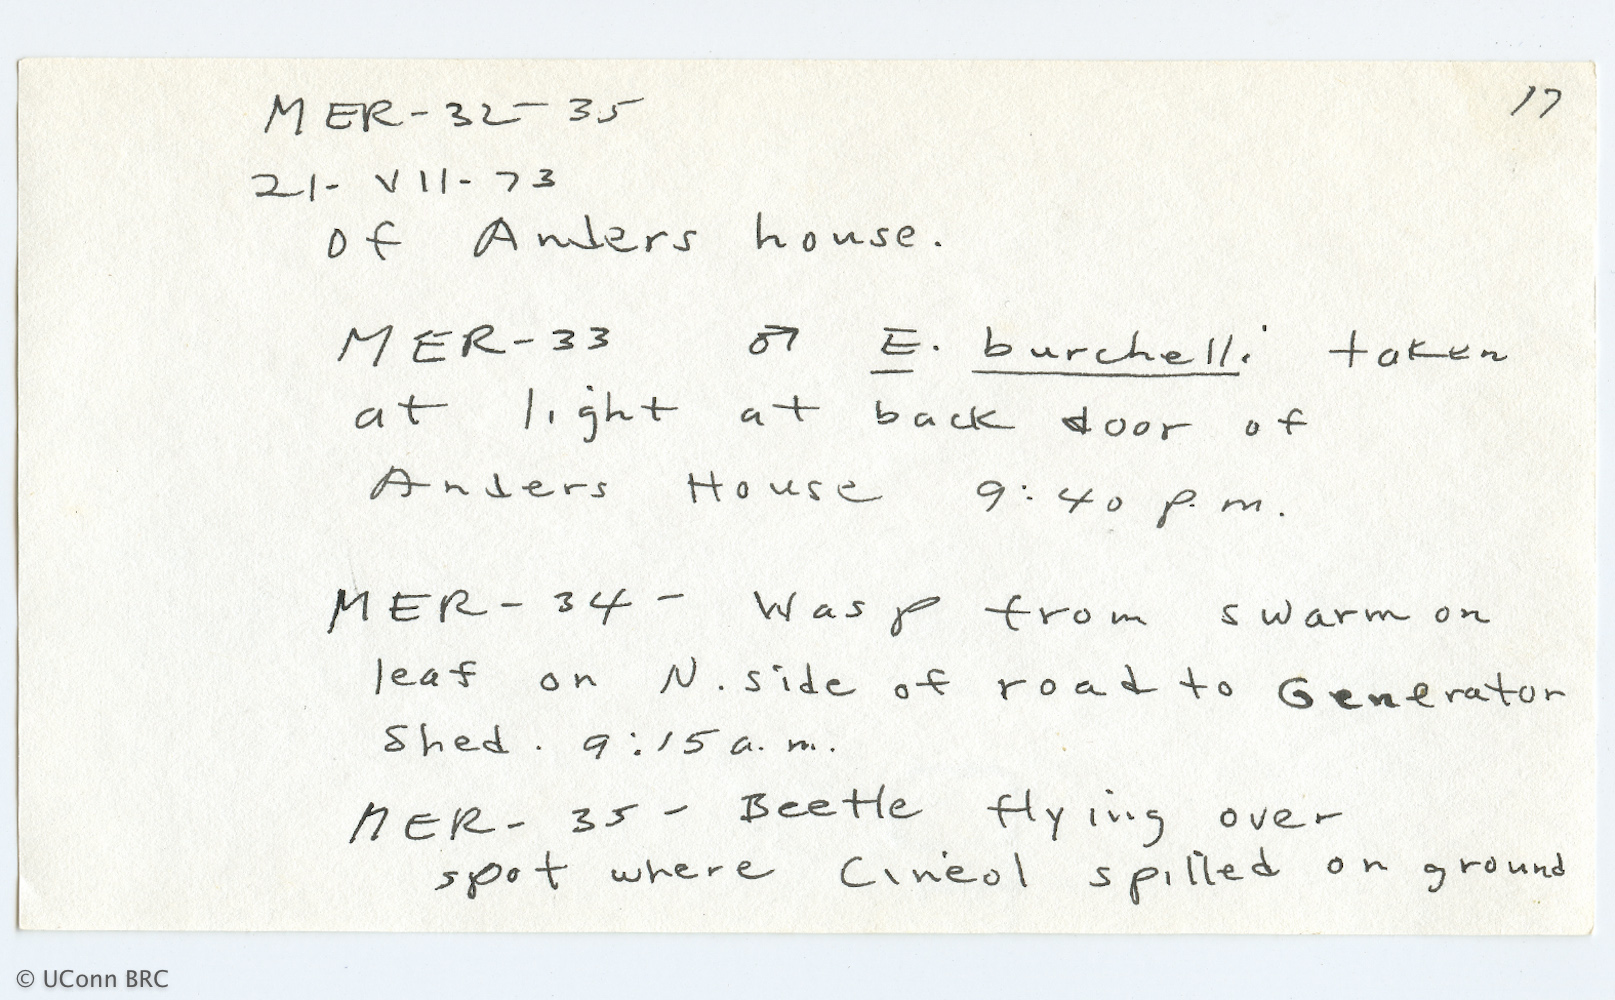 17
MER-32-35
21-VII-73
of Anders house.
MER-33 ♂ E. burchelli taken
at light at back door of
Anders House 9:40 p.m.
MER-34- Wasp from swarm on
leaf on N. side of road to Generator
Shed. 9:15 a.m.
MER-35- Beetle flying over
spot where Cineol spilled on ground
© UConn BRC